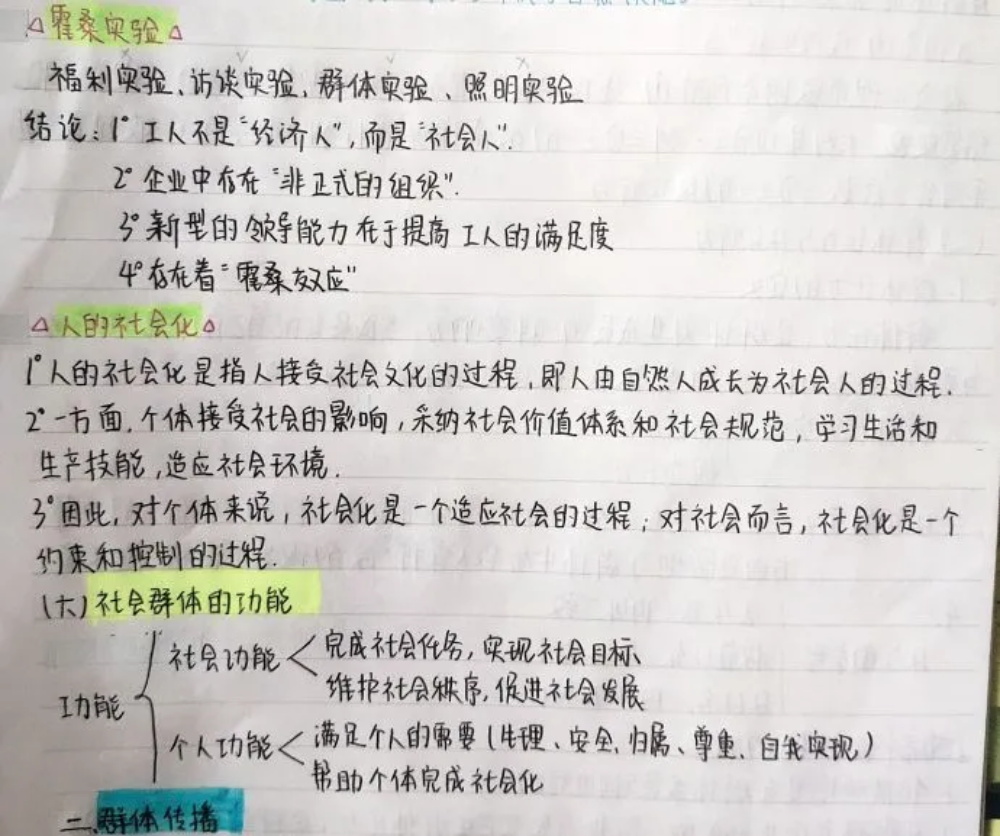 △霍桑实验△
福利实验、访谈实验、群体实验、照明实验
结论:1°工人不是“经济人”,而是“社会人”.
2°企业中存在“非正式的组织”.
3°新型的领导能力在于提高工人的满足度
4°存在着“霍桑效应”
△人的社会化△
1°人的社会化是指人接受社会文化的过程,即人由自然人成长为社会人的过程.
2°一方面,个体接受社会的影响,采纳社会价值体系和社会规范,学习生活和
生产技能,适应社会环境.
3°因此,对个体来说,社会化是一个适应社会的过程;对社会而言,社会化是一个
约束和控制的过程.
(六)社会群体的功能
功能
社会功能 完成社会任务,实现社会目标
维护社会秩序,促进社会发展
个人功能 满足个人的需要(生理、安全、归属、尊重、自我实现)
帮助个体完成社会化
二、群体传播